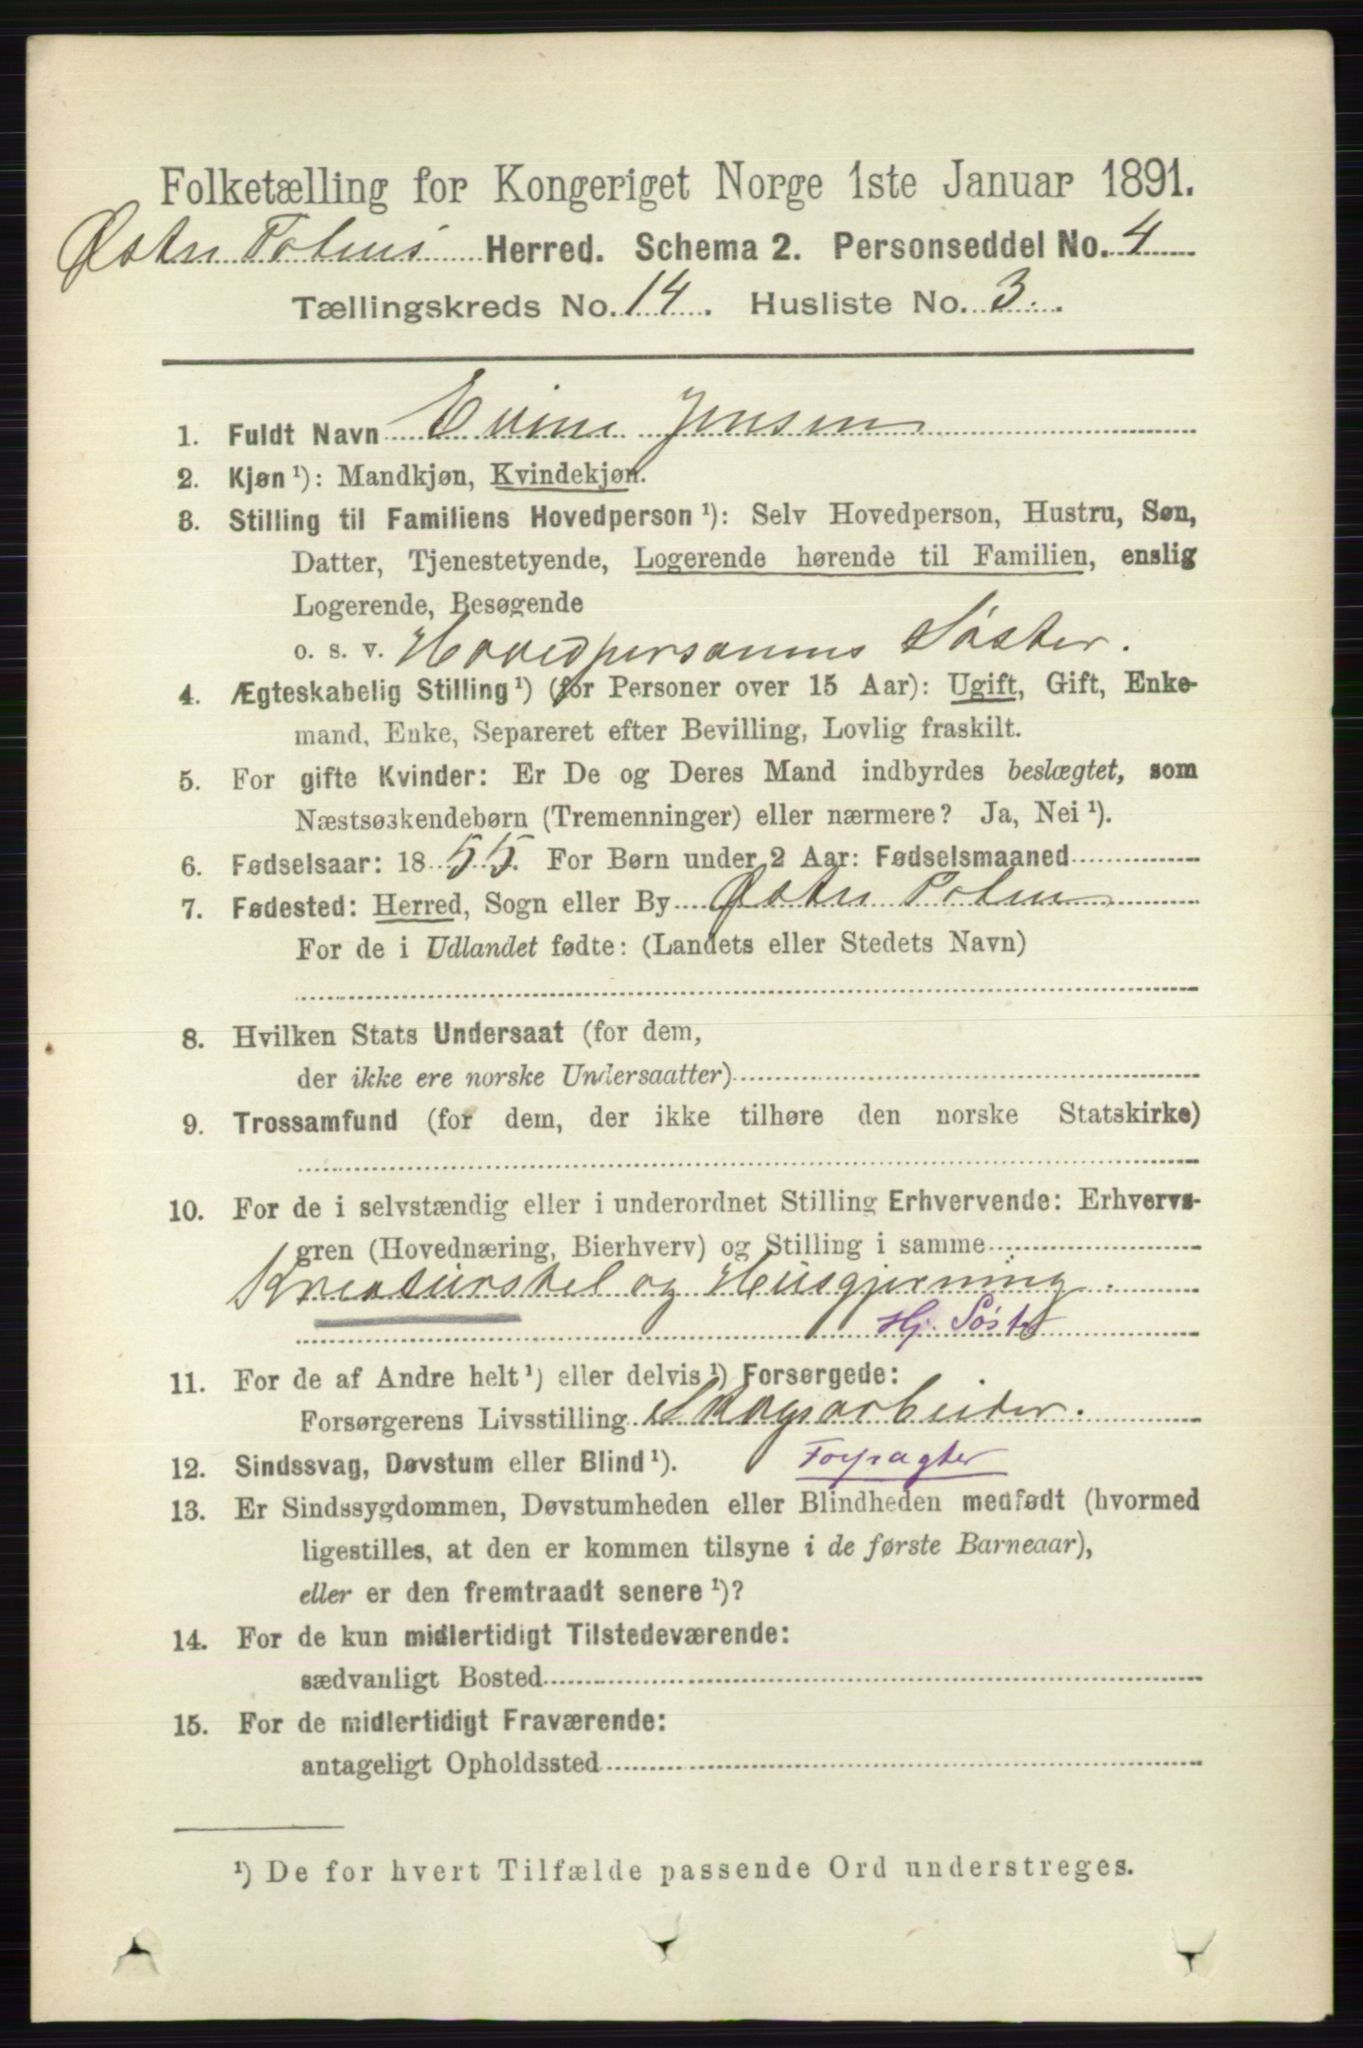 Folketælling for Kongeriget Norge 1ste Januar 1891.
Østre Totens Herred. Schema 2. Personseddel No. 4
Tællingskreds No. 14. Husliste No. 3.
1. Fuldt Navn Evine Jensen
2. Kjøn ¹): Mandkjøn, Kvindekjøn.
3. Stilling til Familiens Hovedperson ¹): Selv Hovedperson, Hustru, Søn,
Datter, Tjenestetyende, Logerende hørende til Familien, enslig
Logerende, Besøgende
o. s. v. Hovedpersonens Søster.
4. Ægteskabelig Stilling ¹) (for Personer over 15 Aar): Ugift, Gift, Enke-
mand, Enke, Separeret efter Bevilling, Lovlig fraskilt.
5. For gifte Kvinder: Er De og Deres Mand indbyrdes beslægtet, som
Næstsøskendebørn (Tremenninger) eller nærmere? Ja, Nei ¹).
6. Fødselsaar: 1855. For Børn under 2 Aar: Fødselsmaaned
7. Fødested: Herred, Sogn eller By Østre Toten
For de i Udlandet fødte: (Landets eller Stedets Navn)
8. Hvilken Stats Undersaat (for dem,
der ikke ere norske Undersaatter)
9. Trossamfund (for dem, der ikke tilhøre den norske Statskirke)
10. For de i selvstændig eller i underordnet Stilling Erhvervende: Erhvervs-
gren (Hovednæring, Bierhverv) og Stilling i samme
Kreaturstel og Husgjerning.
Hj. Søster
11. For de af Andre helt ¹) eller delvis ¹) Forsørgede:
Forsørgerens Livsstilling Skogsarbeider.
12. Sindssvag, Døvstum eller Blind ¹). Forpagter
13. Er Sindssygdommen, Døvstumheden eller Blindheden medfødt (hvormed
ligestilles, at den er kommen tilsyne i de første Barneaar),
eller er den fremtraadt senere ¹)?
14. For de kun midlertidigt Tilstedeværende:
sædvanligt Bosted
15. For de midlertidigt Fraværende:
antageligt Opholdssted
¹) De for hvert Tilfælde passende Ord understreges.